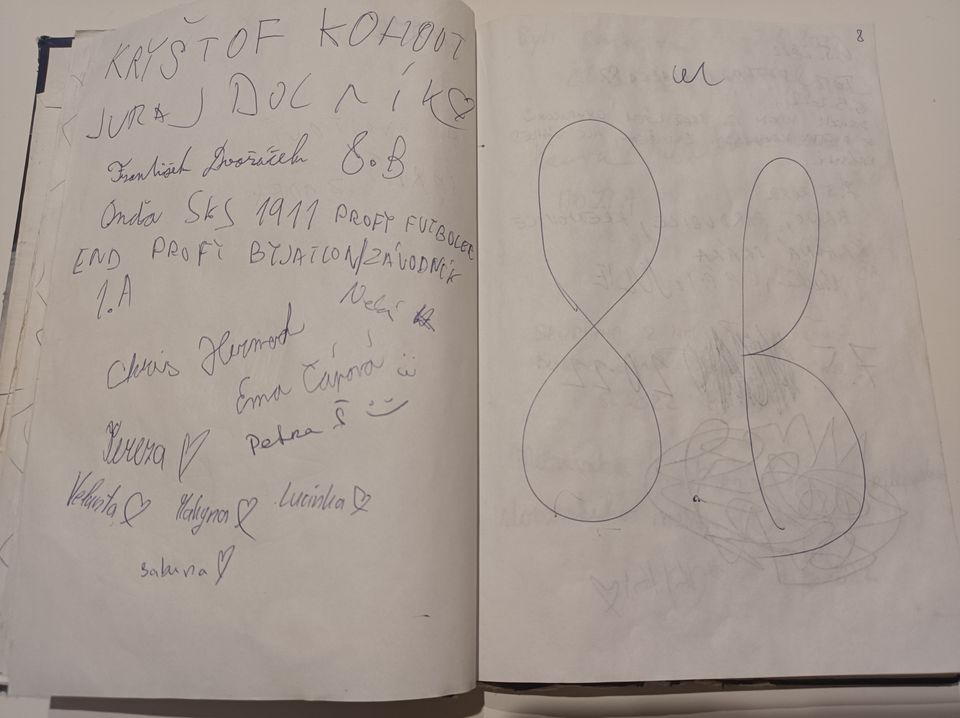 KRYŠTOF KOHOUT
JURAJ DOLNÍK
František Dvořáček 8.B
Onďa SKS 1911 PROFY FUTBOLEC
END PROFY BYJATLON/ZÁVODNÍK
1.A
Nela
Chris Hermach
Ema Čápová
Tereza
Petra Š
Verunka
Lucinka
sabina
8
8B